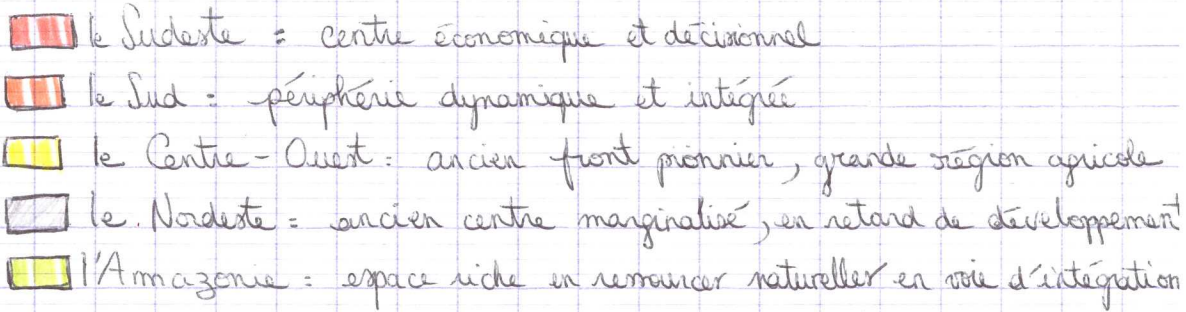 le Sudeste = centre économique et décisionnel
le Sud = périphérie dynamique et intégrée
le Centre-Ouest = ancien front pionnier, grande région agricole
le Nordeste = ancien centre marginalisé, en retard de développement
l'Amazonie = espace riche en ressources naturelles en voie d'intégration